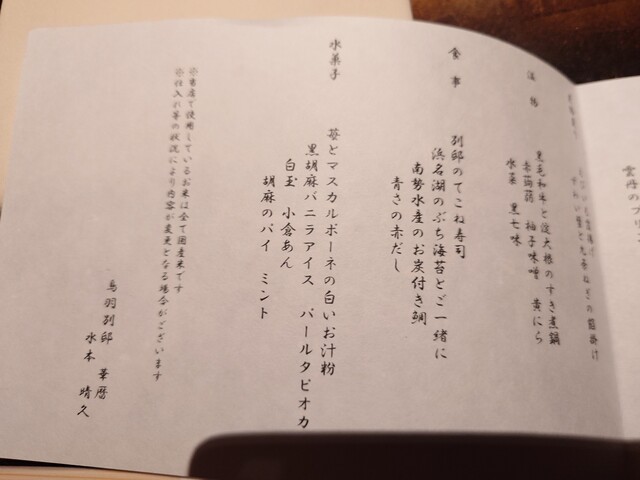 雲丹のブリ
ずわい蟹と九条ねぎの餡掛け
温物
黒毛和牛と淀大根のすき煮鍋
赤蒟蒻 柚子味噌 黄にら
水菜 黒七味
食事
別邸のてこね寿司
浜名湖のぶち海苔とご一緒に
南勢水産のお炭付き鯛
青さの赤だし
水菓子
苺とマスカルポーネの白いお汁粉
黒胡麻バニラアイス パールタピオカ
白玉 小倉あん
胡麻のパイ ミント
※当店で使用しているお米は全て国産米です
※仕入れ等の状況により内容が変更となる場合がございます
鳥羽別邸 華暦
水本 晴久